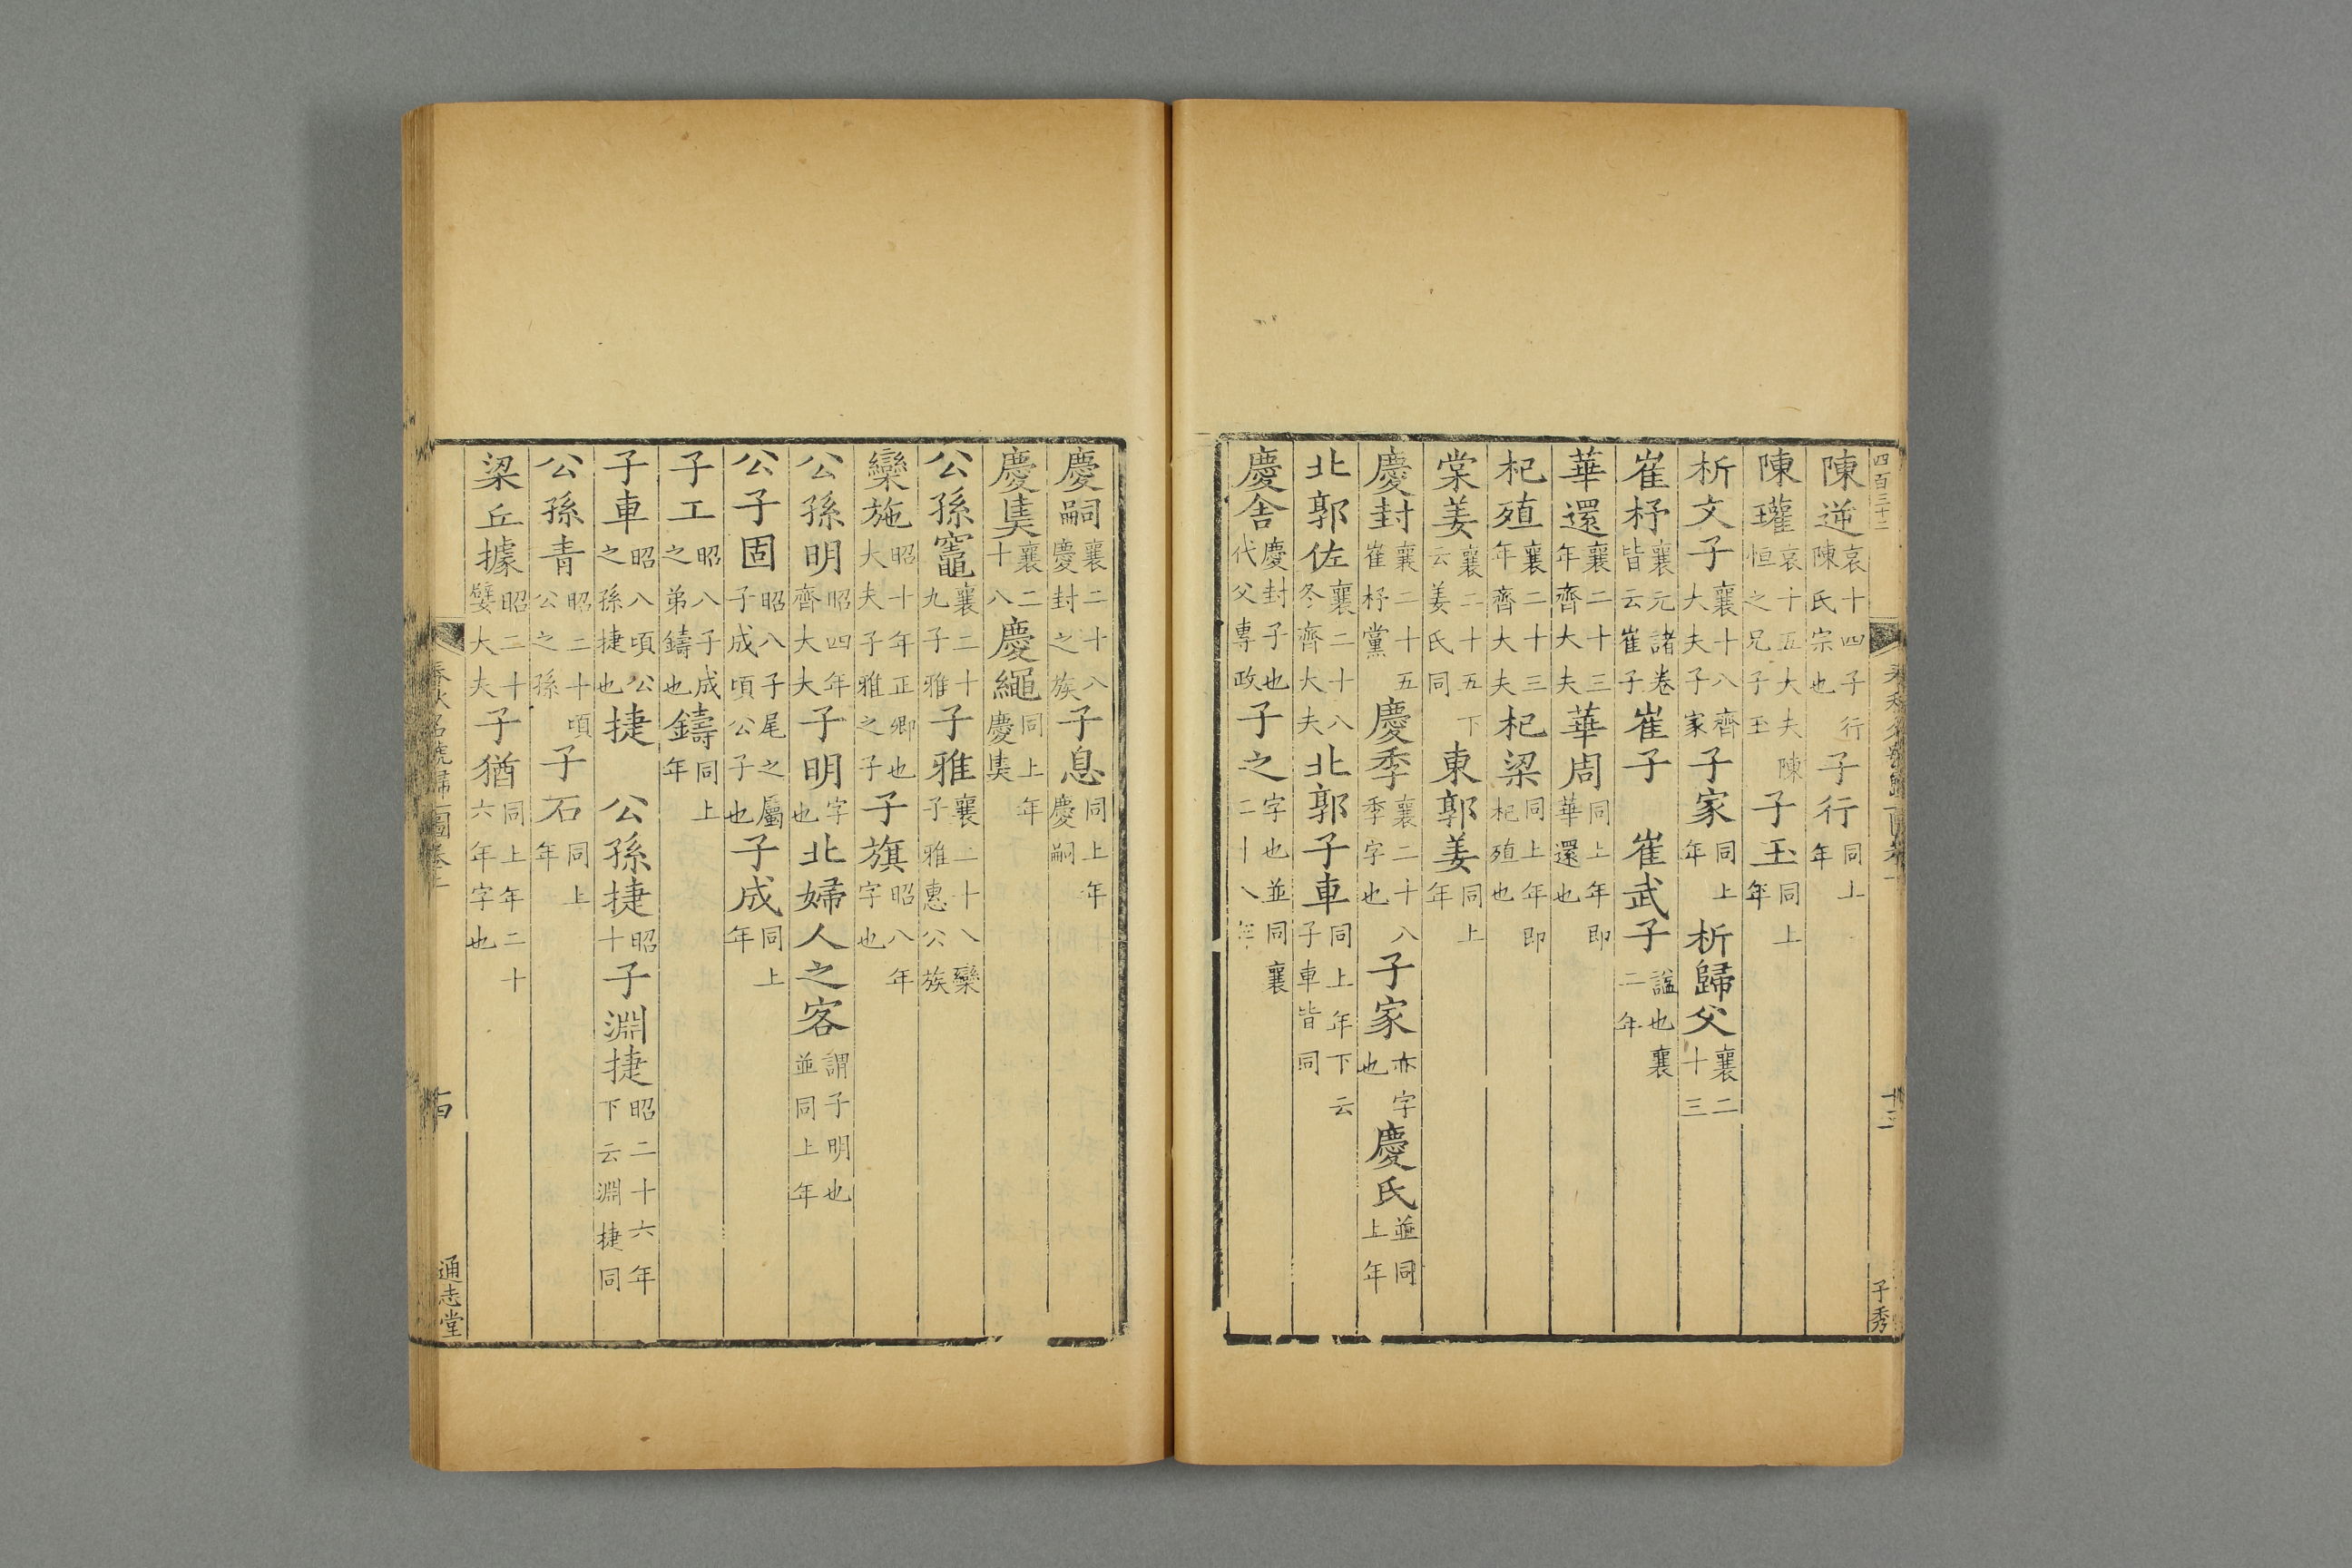 四百三十二
陳逆哀十四子行陳氏宗也子行同上年
陳瓘哀十五大夫陳恒之兄子玉子玉同上年
析文子襄十八齊大夫子家子家同上年析歸父襄二十三
崔杼襄元諸卷皆云崔子崔子 崔武子諡也襄二年
華還襄二十三年齊大夫華周同上年即華還也
杞殖襄二十三年齊大夫杞梁同上年即杞殖也
棠姜襄二十五下云姜氏同東郭姜同上年
慶封襄二十五崔杼黨慶季襄二十八季字也子家亦字也慶氏並同上年
北郭佐襄二十八冬齊大夫北郭子車同上年下云子車皆同
慶舍慶封子也代父專政子之字也並同襄二十八年
十三
子秀
慶嗣襄二十八慶封之族子息同上年慶嗣
慶𡙇襄二十八慶繩同上年慶𡙇
公孫竈襄二十九子雅子雅襄二十八欒子雅惠公族
欒施昭十年正卿也大夫子雅之子子旗昭八年字也
公孫明昭四年齊大夫子明字也北婦人之客謂子明也並同上年
公子固昭八子尾之屬子成頃公子也子成同上年
子工昭八子成之弟鑄也鑄同上年
子車昭八頃公之孫捷也捷 公孫捷昭十子淵捷昭二十六年下云淵捷同
公孫青昭二十頃公之孫子石同上年
梁丘據昭二十嬖大夫子猶同上年二十六年字也
春秋名號歸一圖卷上
十四
通志堂